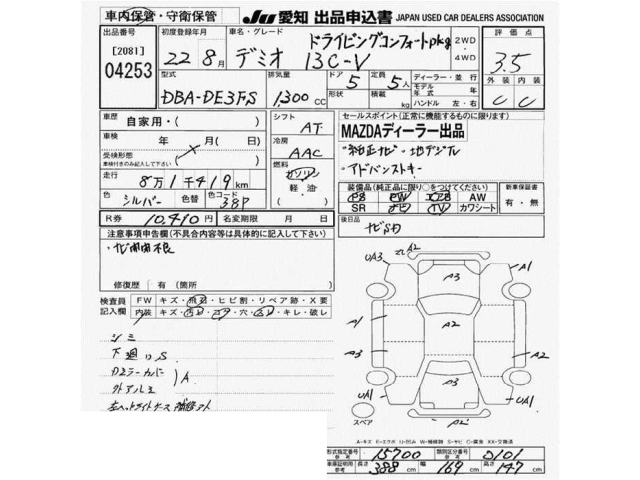 車内保管・守衛保管
JU 愛知 出品申込書 JAPAN USED CAR DEALERS ASSOCIATION
出品番号
[2081]
04253
初度登録年月
22年8月
車名・グレード
ドライビングコンフォートpkg
デミオ 13C-V
2WD
4WD
評価点
3.5
型式
DBA-DE3FS
排気量
1,300cc
ドア
5
形状
定員
5人
積載
kg
ディーラー・並行
モデル年式 年
ハンドル 左・右
外装 内装
C C
車歴
自家用・( )
シフト
AT
セールスポイント(正常に機能するものに限ります)
MAZDAディーラー出品
・純正ナビ・地デジTV
・アドバンストキー
車検
年 月( 日)
冷房
AAC
受検形態
車検付きのみ記入して下さい
燃料
ガソリン
軽油・
( )
走行
8万1千419km
装備品(純正品に限り○をつけてください)
PS PW エアB AW
SR ナビ TV カワシート
新車保証書
有・無
色
シルバー
色替
色コード
38P
R券 10,410円 名変期限 月 日
後日品
ナビSD
注意事項申告欄(不具合内容等は具体的に記入して下さい)
・ナビ開閉不良
修復歴 有(箇所 )
検査員記入欄
FW キズ・飛石・ヒビ割・リペア跡・X要
内装 キズ・汚れ・コゲ・穴・スレ・キレ・破レ
シミ
下廻りS
カエラーカバー
外アルミ
A
左ヘットライトケース 補修アト
UA3 A2 A3 A1
A1 A2
A3 A2
A3
UA1 A2 UA1
スペア
A=キズ E=エクボ U=凹み W=補修跡 S=サビ C=腐食 XX=交換済
形式指定番号 参考 15700 類別区分番号 参考 0101
車庫証明用 参考 長さ 388cm 幅 169cm 高さ 147cm